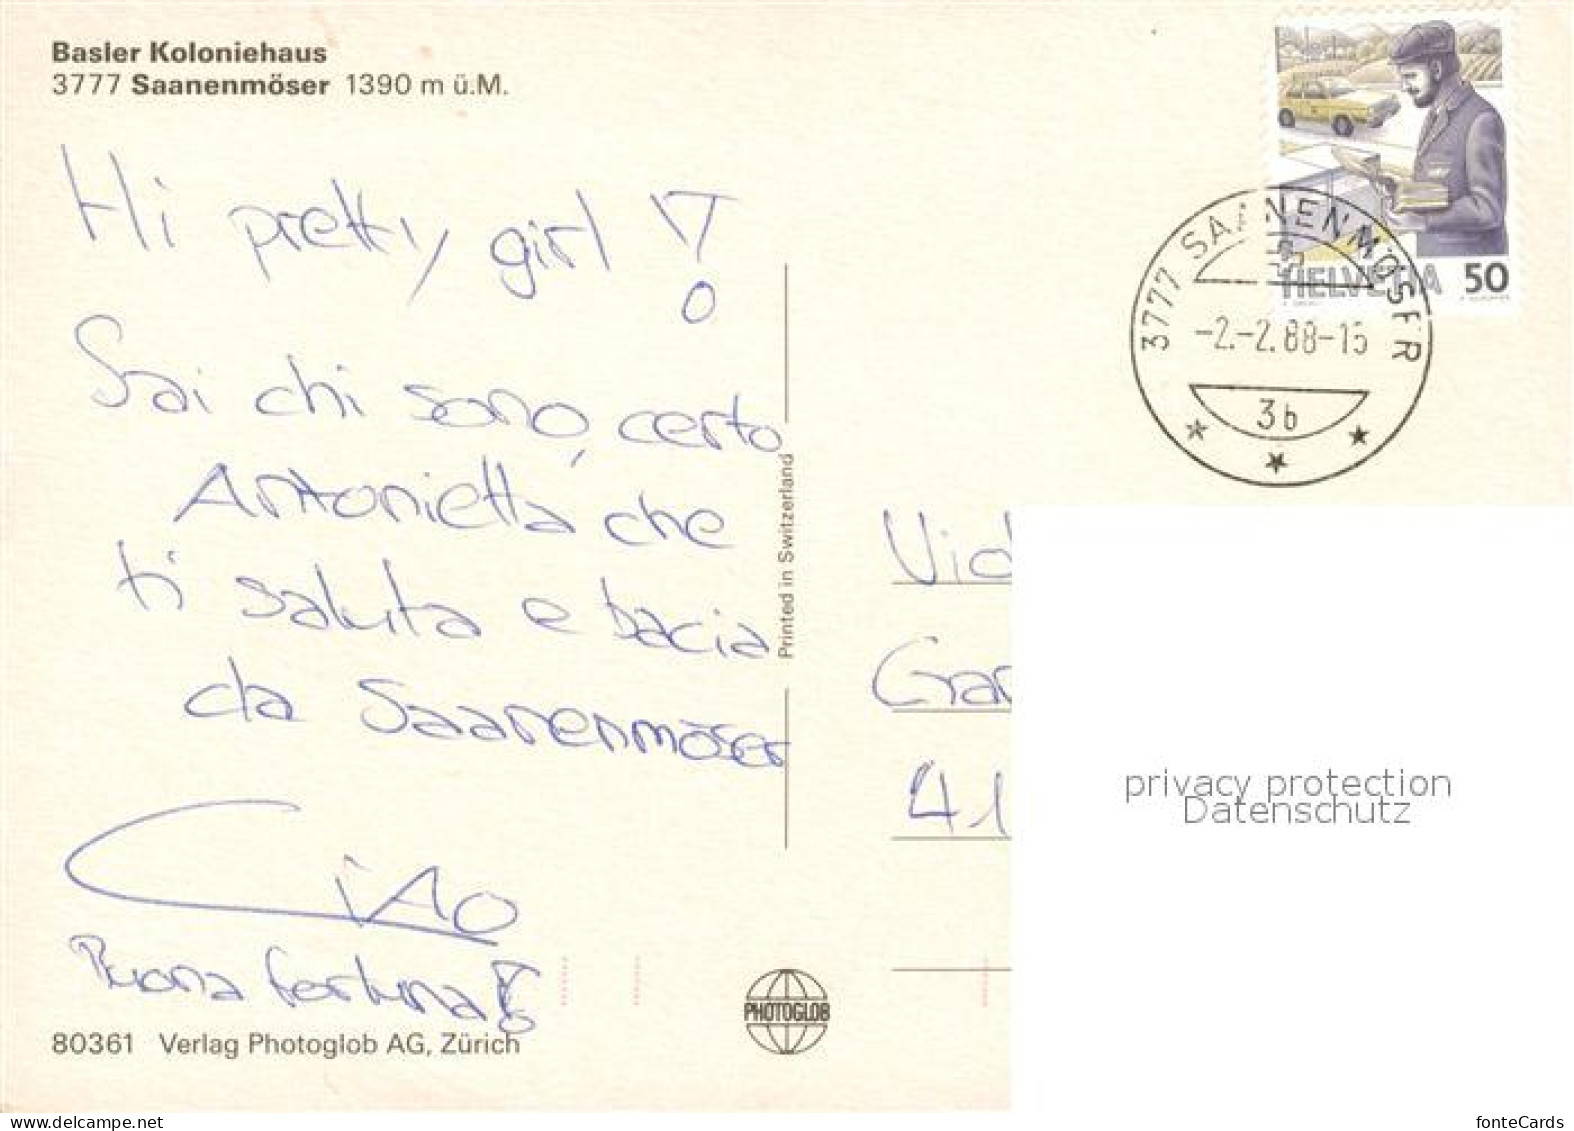 Basler Koloniehaus
3777 Saanenmöser 1390 m ü.M.
Hi pretty girl !
Sai chi sono, certo
Antonietta, che
ti saluta e bacia
da Saanenmöser
CiAo
Buona fortuna!
80361 Verlag Photoglob AG, Zürich
Printed in Switzerland
PHOTOGLOB
HELVETIA 50
3777 SAANENMÖSER
-2.-2.88-15
3b
Gar
41
privacy protection
Datenschutz
fonteCards